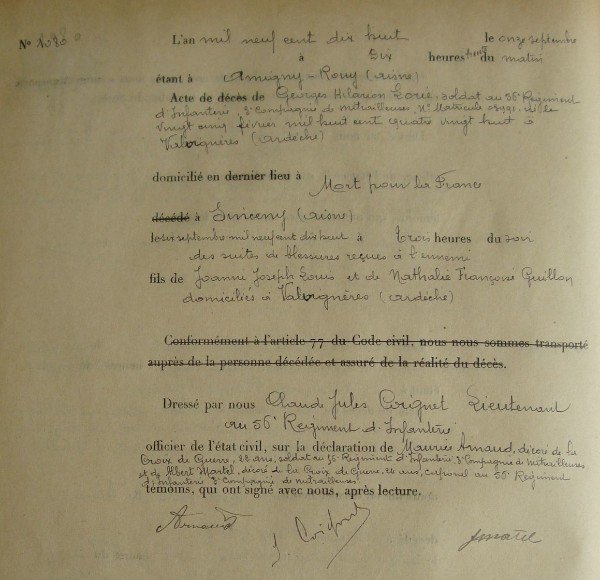 N° 2080
L'an mil neuf cent dix huit le onze septembre
à six heures du matin
étant à Amigny-Rouy (Aisne)
Acte de décès de Georges Hilarion Louis, soldat au 56e Régiment
d'Infanterie, 3e Compagnie de Mitrailleuses, N° Matricule né le
vingt cinq février mil huit cent quatre vingt huit à
Valvignères (Ardèche)
domicilié en dernier lieu à Mort pour la France
décédé à Sinceny (Aisne)
le six septembre mil neuf cent dix huit à trois heures du soir
des suites de blessures reçues à l'ennemi
fils de Joseph Louis et de Nathalie Françoise Guillon
domiciliés à Valvignères (Ardèche)
Conformément à l'article 77 du Code civil, nous nous sommes transporté
auprès de la personne décédée et assuré de la réalité du décès.
Dressé par nous Claude Jules Coignet Lieutenant
au 56e Régiment d'Infanterie
officier de l'état civil, sur la déclaration de Maurice Arnaud, décoré de la
Croix de Guerre, 28 ans, soldat au 56e Régiment d'Infanterie 3e Compagnie de Mitrailleuses
et de Albert Martel, décoré de la Croix de Guerre, 22 ans, caporal au 56e Régiment
d'Infanterie 3e Compagnie de Mitrailleuses
témoins, qui ont signé avec nous, après lecture.
Arnaud J. Coignet Martel